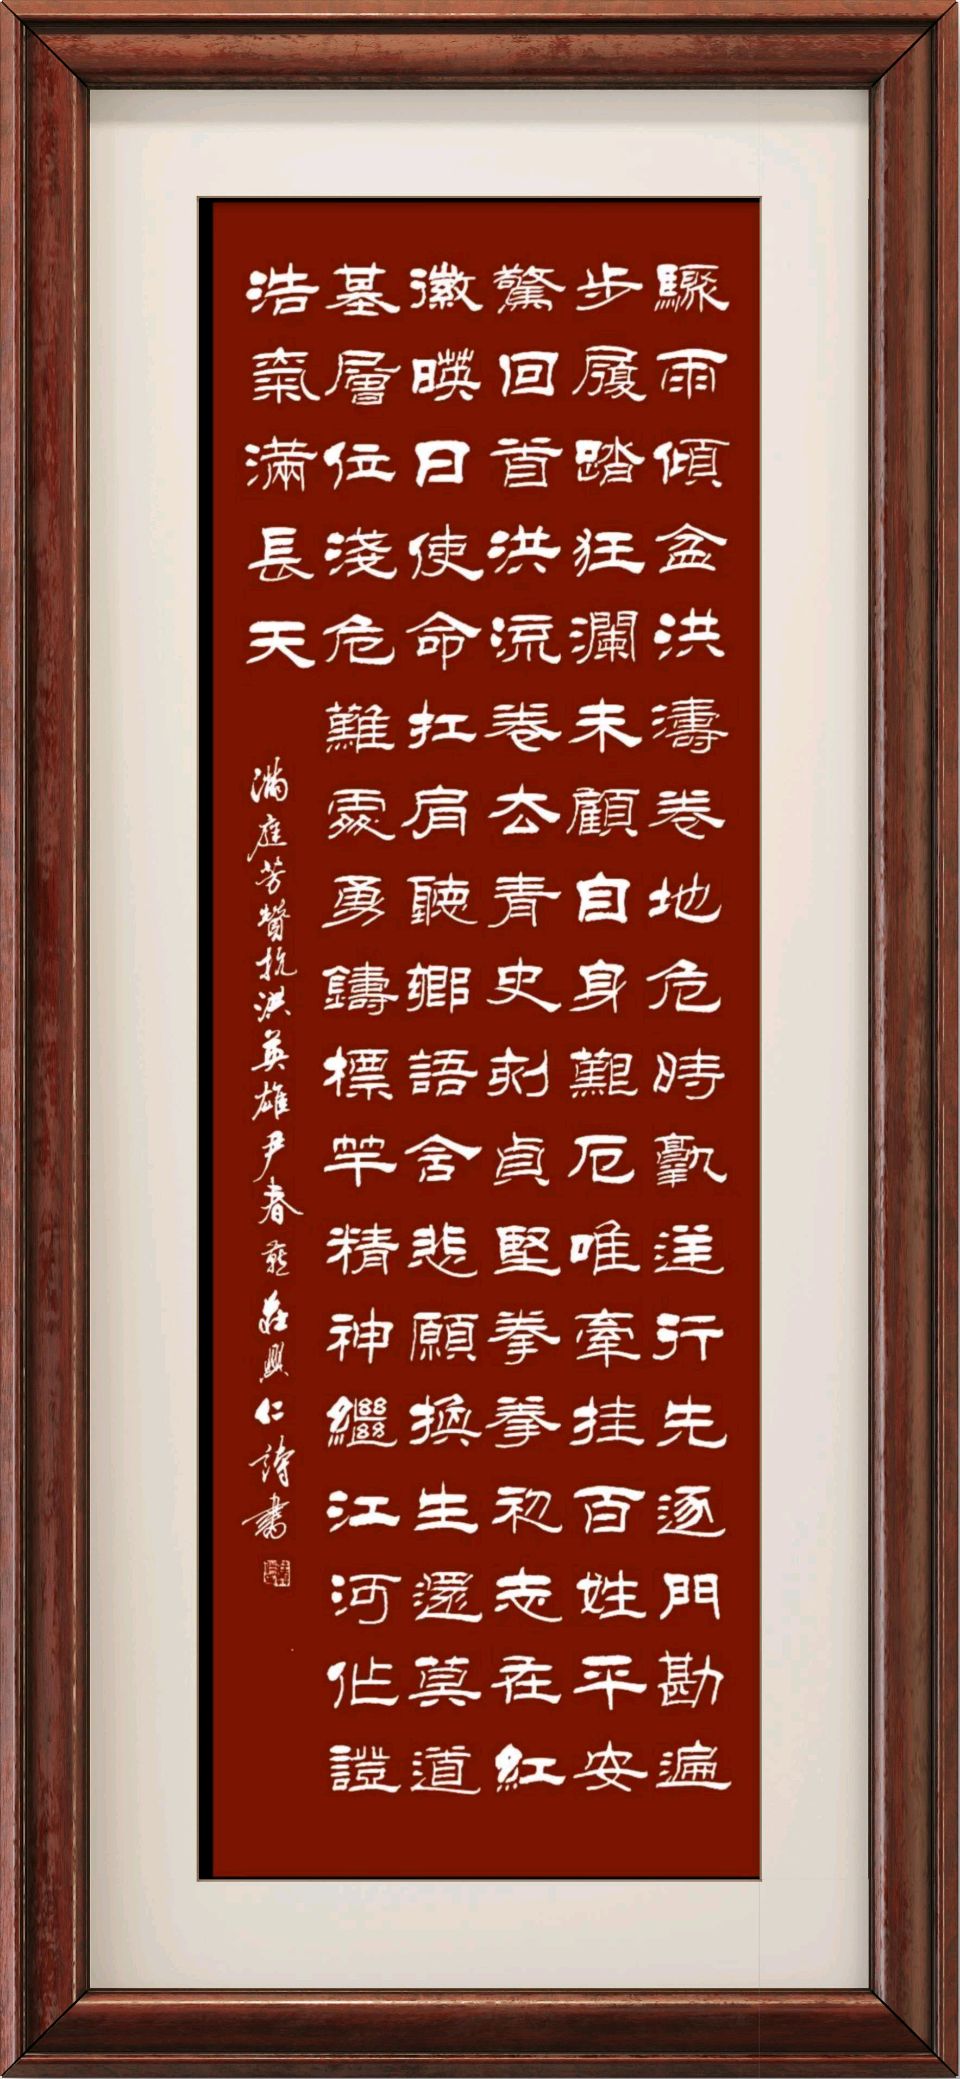 驟雨傾盆洪濤卷地危時孰逆行先逐門勘遍
步履踏狂瀾未顧自身艱厄唯牽挂百姓平安
驚回首洪流卷去青史刻貞堅拳拳初志在紅
徽暎日使命扛肩聽鄉語含悲願換生還莫道
基層位淺危難處勇鑄標竿精神繼江河作證
浩氣滿長天
滿庭芳贊抗洪英雄尹春燕莊興仁詩書